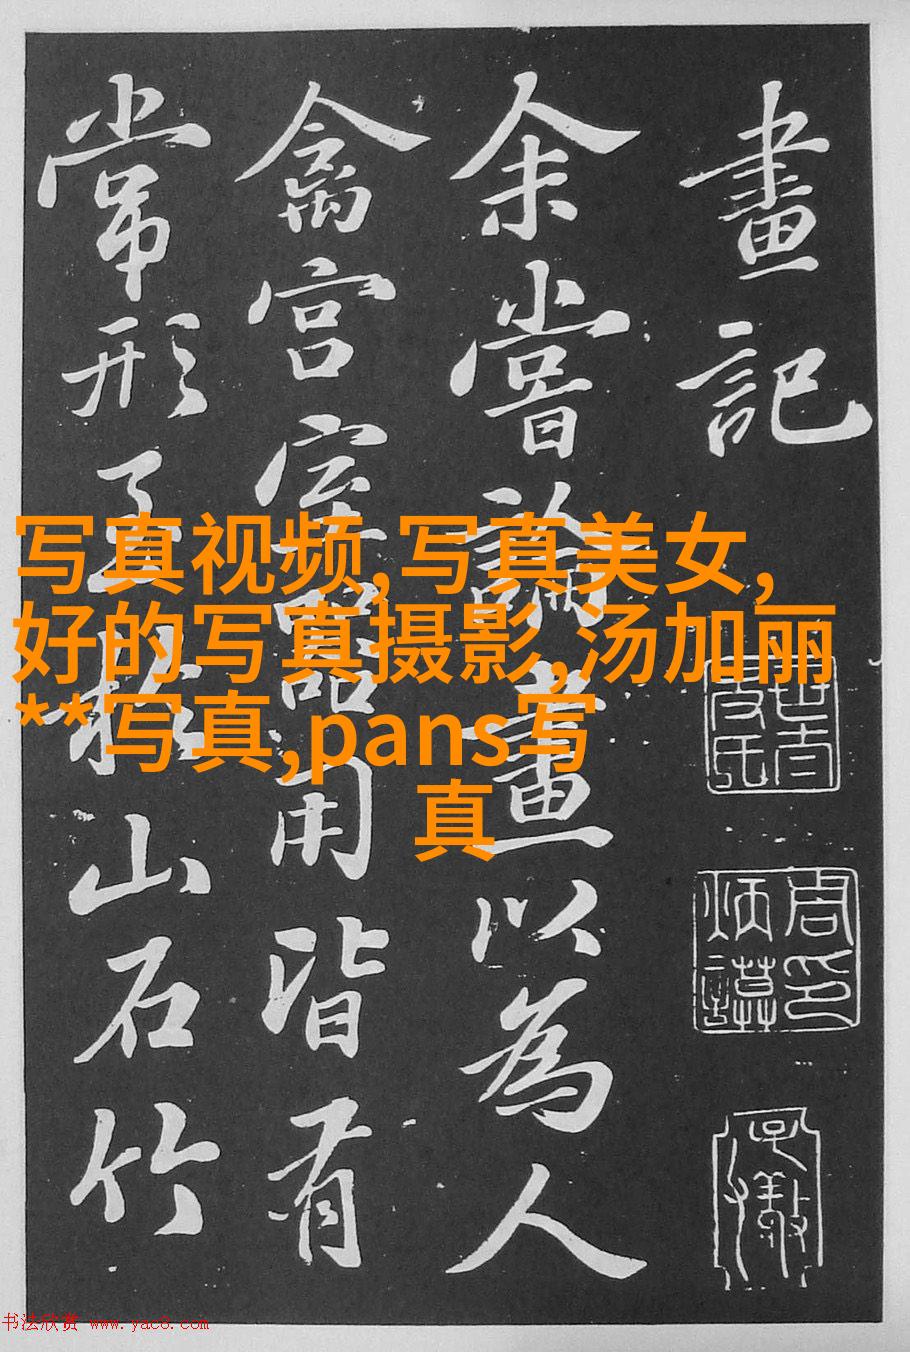 畫記
余嘗論畫以為人
禽宮室器用皆有
常形至於山石竹
写真视频,写真美女,
好的写真摄影,汤加丽
**写真,pans写
真
周印炳謨
书法欣赏 www.yac8.com